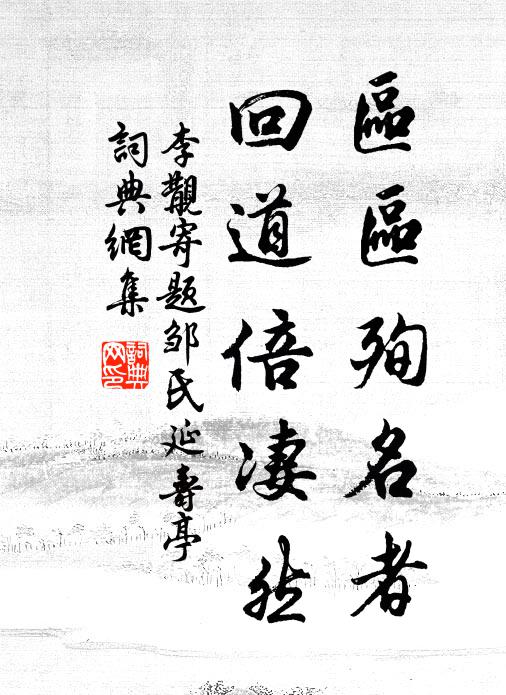 區區殉名者
回道倍凄然
李覯寄題邹氏延壽亭
詞典網集
詞典
网印